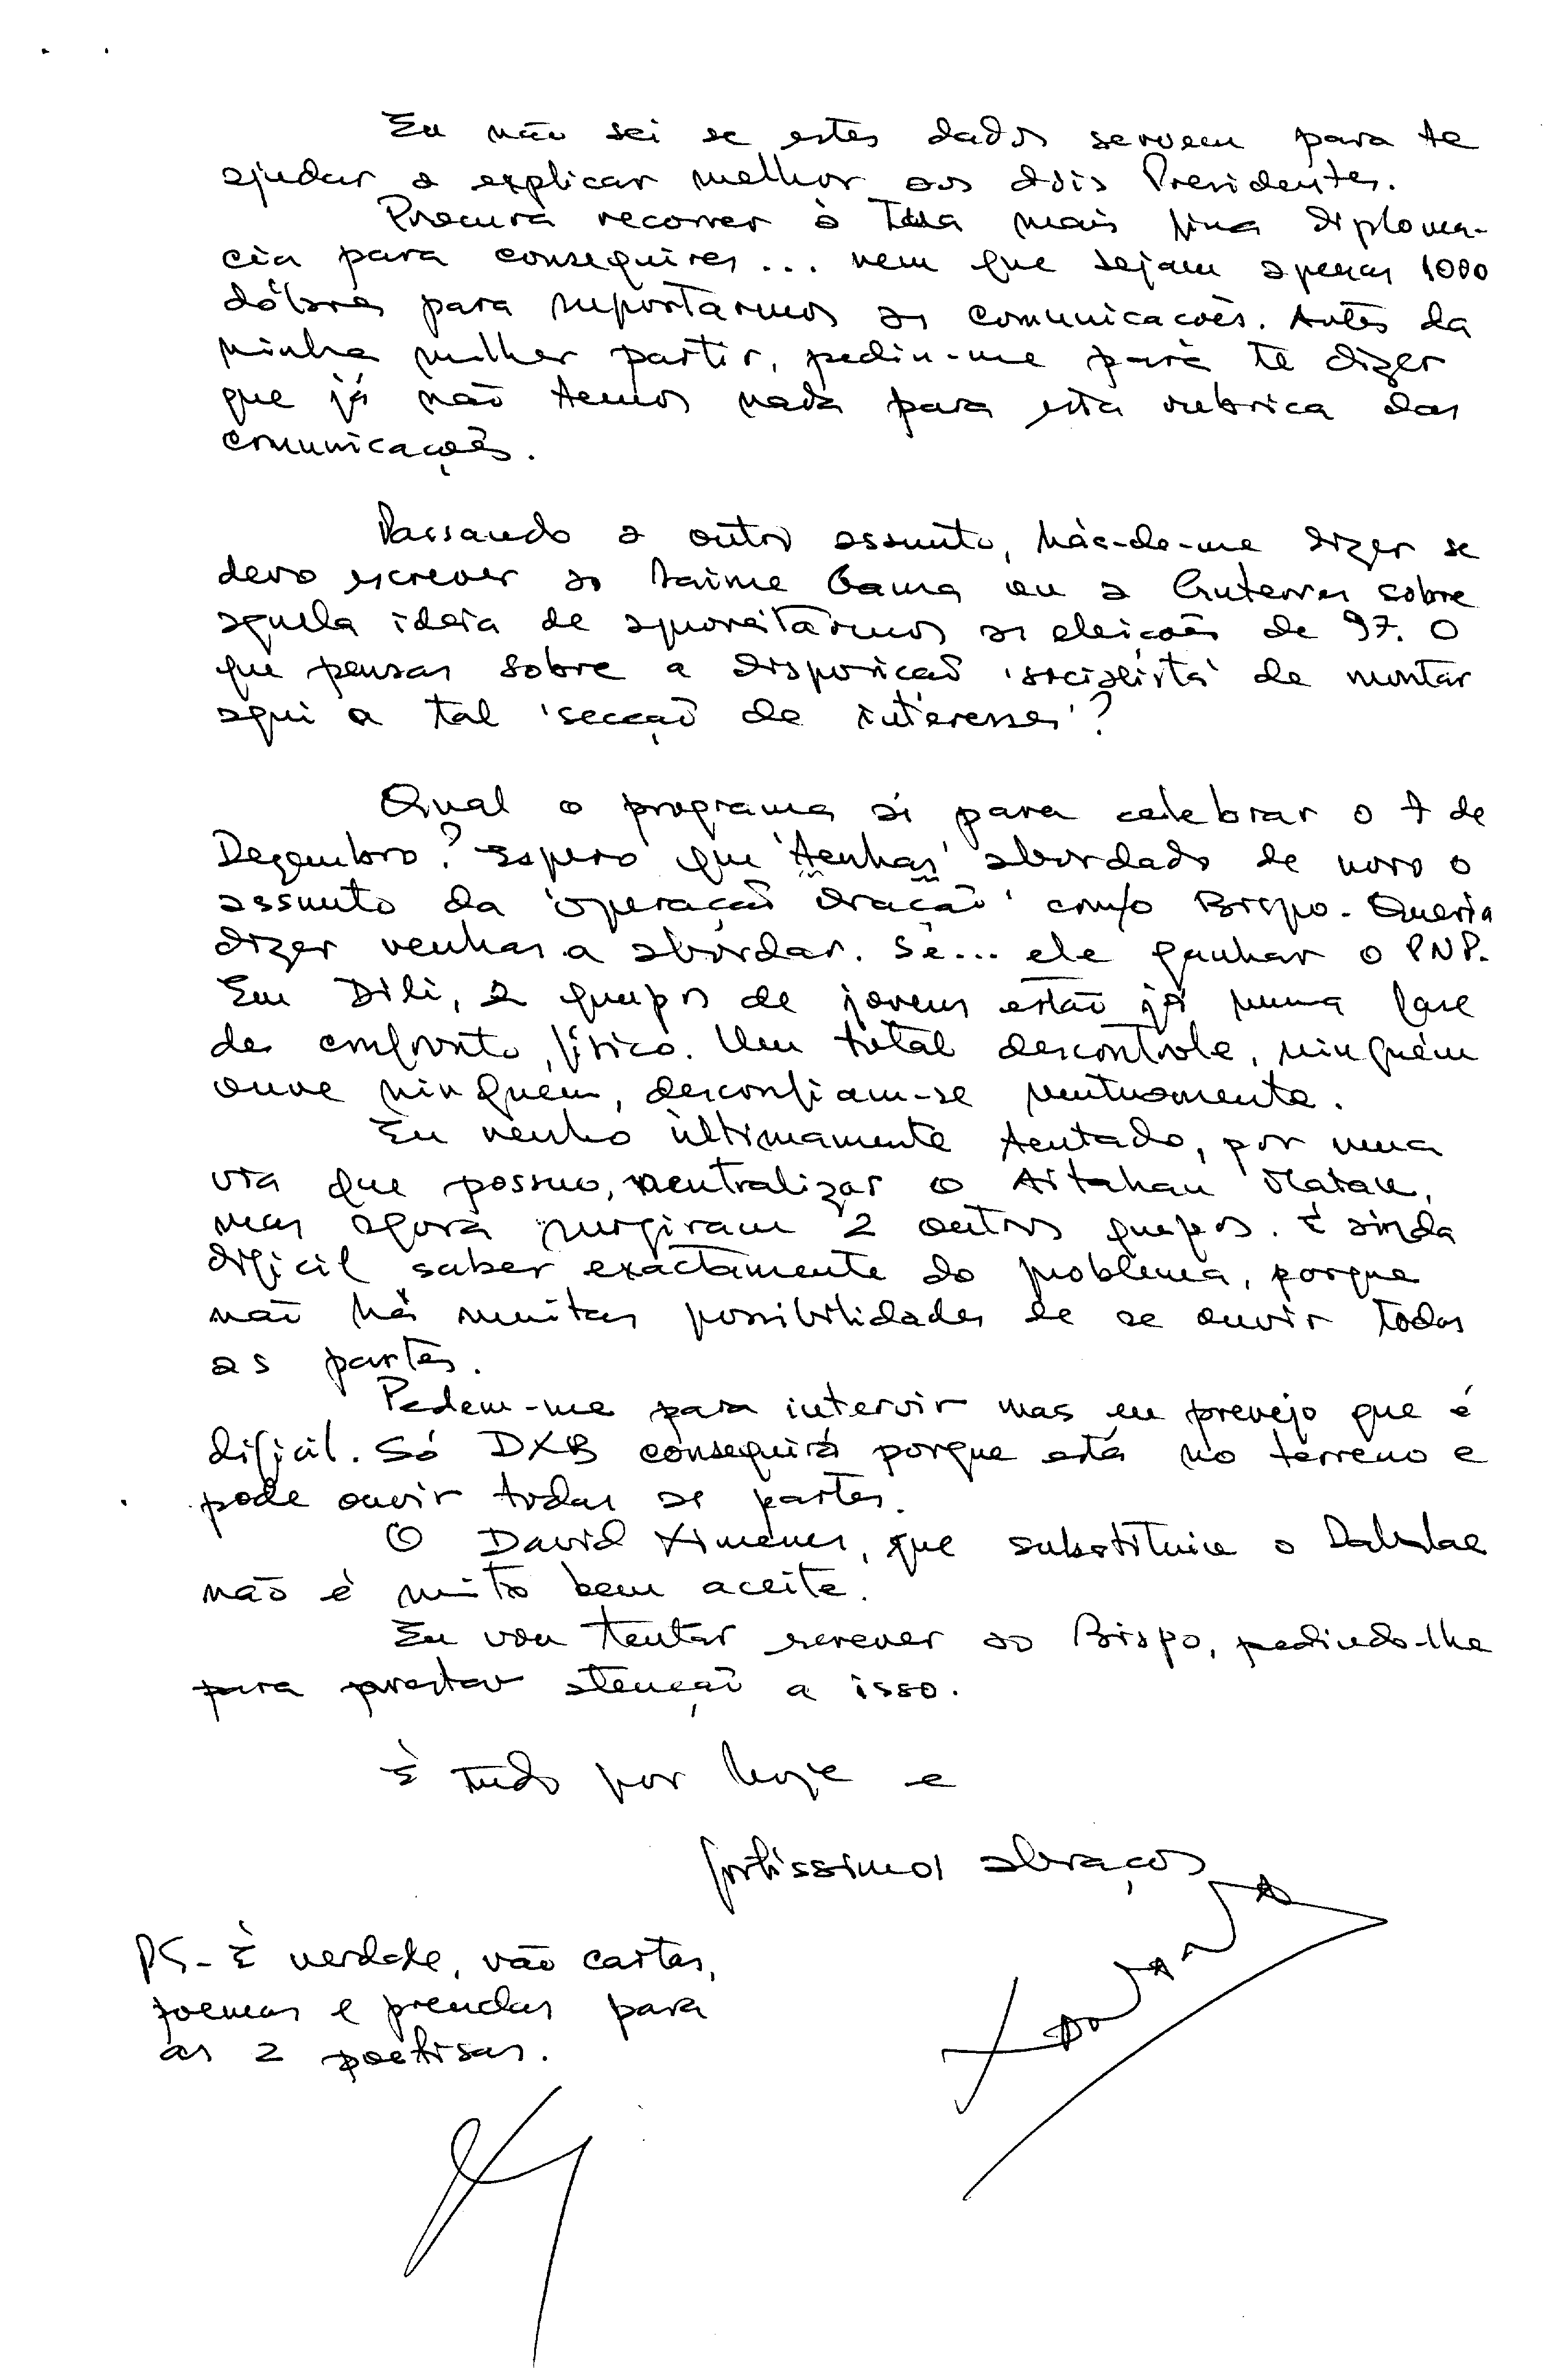 Eu não sei se estes dados servem para te
ajudar a explicar melhor aos dois Presidentes.
Procura recorrer à tua mais fina diploma-
cia para conseguires... nem que sejam apenas 1000
dólares para suportarmos as comunicacões. Antes da
minha mulher partir, pediu-me para te dizer
que já não temos nada para esta rubrica das
comunicações.
Passando a outro assunto, hás-de-me dizer se
devo escrever ao Jaime Gama ou a Guterres sobre
aquela ideia de aproveitarmos as eleições de 97. O
que pensas sobre a disposicão 'socialista' de montar
aqui a tal 'secção de interesses'?
Qual o programa aí para celebrar o 7 de
Dezembro? Espero que 'tenhas' abordado de novo o
assunto da 'operação oração' com o Bispo. Queria
dizer venhas a abordar. Se... ele ganhar o PNP.
Em Dili, 2 grupos de jovens estão já numa fase
de confronto físico. Um total descontrole, ninguém
ouve ninguém, desconfiam-se mutuamente.
Eu venho ùltimamente tentado, por uma
via que possuo, neutralizar o Aitahan Matak,
mas agora surgiram 2 outros grupos. É ainda
dificil saber exactamente do problema, porque
não há muitas possibilidades de se ouvir todas
as partes.
Pedem-me para intervir mas eu prevejo que é
dificil. Só DXB conseguirá porque está no terreno e
pode ouvir todas as partes.
O David Ximenes, que substituira o
não é muito bem aceite.
Eu vou tentar escrever ao Bispo, pedindo-lhe
para prestar atenção a isso.
É tudo por hoje e
fortissimos abraços
Xanana
PS- É verdade, vão cartas,
poemas e prendas para
as 2 poetisas.